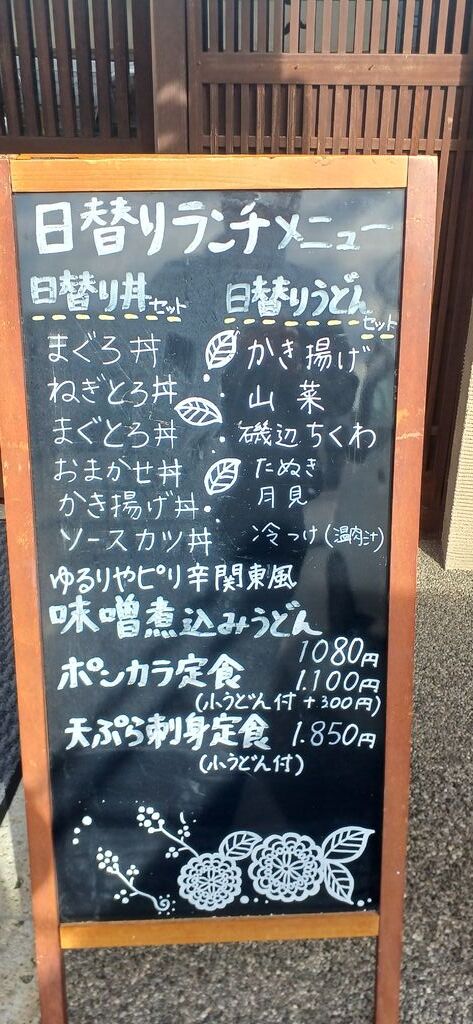 日替りランチメニュー
日替り丼セット
まぐろ丼
ねぎとろ丼
まぐとろ丼
おまかせ丼
かき揚げ丼
ソースカツ丼
日替りうどんセット
かき揚げ
山菜
磯辺ちくわ
たぬき
月見
冷つけ(温肉汁)
ゆるりやピリ辛関東風
味噌煮込みうどん
1080円
ポンカラ定食 1.100円
(小うどん付+300円)
天ぷら刺身定食 1.850円
(小うどん付)